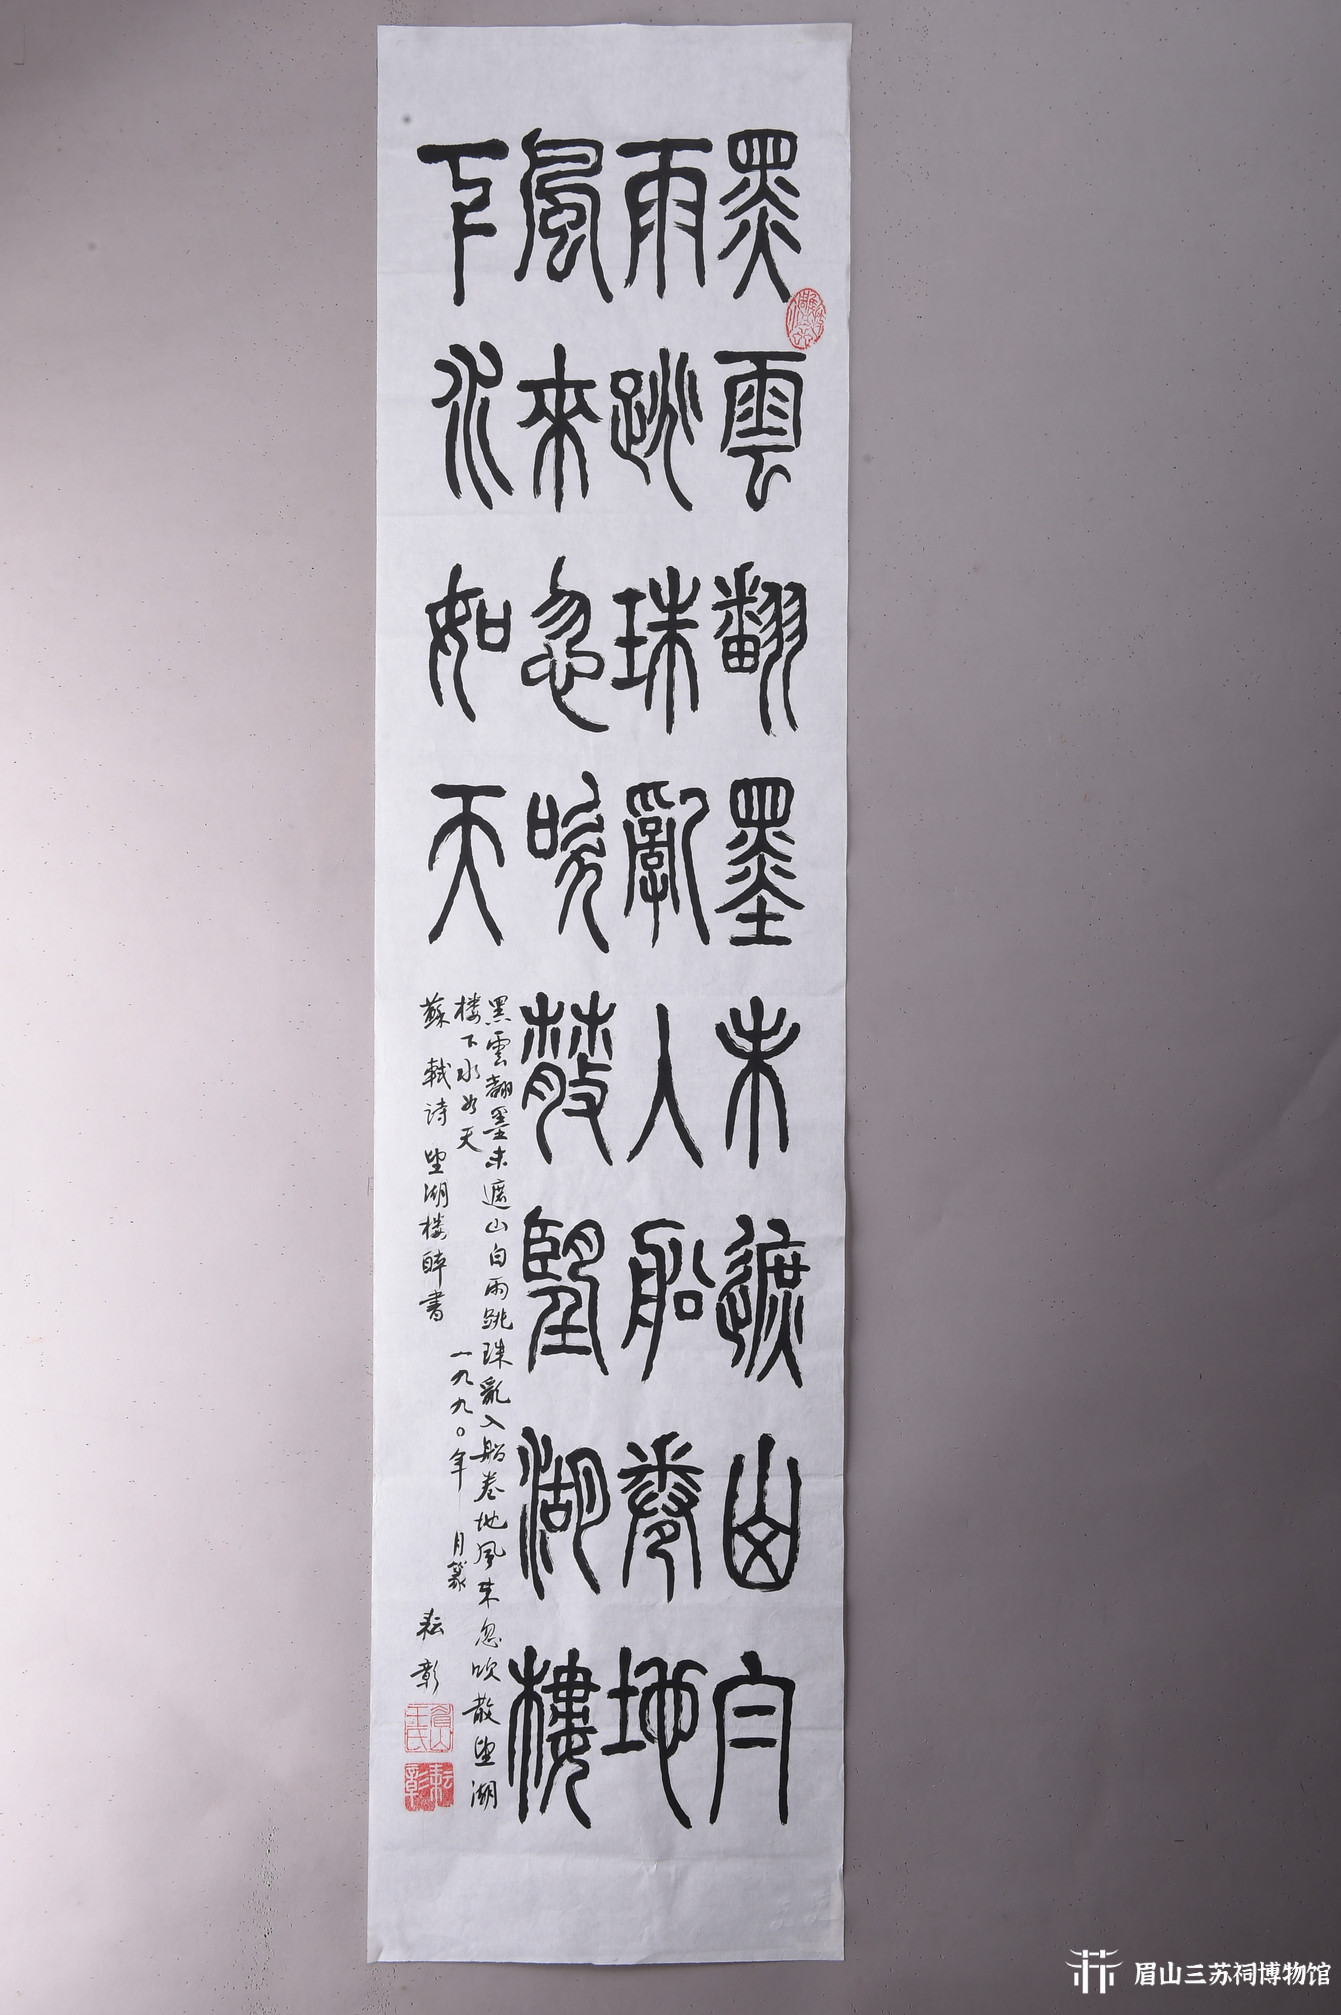 黑雲翻墨未遮山白
雨跳珠亂入船卷地
風來忽吹散望湖樓
下水如天
黑雲翻墨未遮山白雨跳珠亂入船卷地風來忽吹散望湖
楼下水如天
一九九〇年 月篆
蘇軾诗望湖楼醉書
耘彰
耘彰
眉山三苏祠博物馆